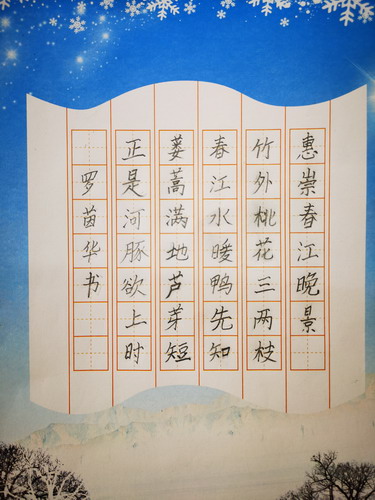 惠崇春江晚景
竹外桃花三两枝
春江水暖鸭先知
蒌蒿满地芦芽短
正是河豚欲上时
罗茵华书